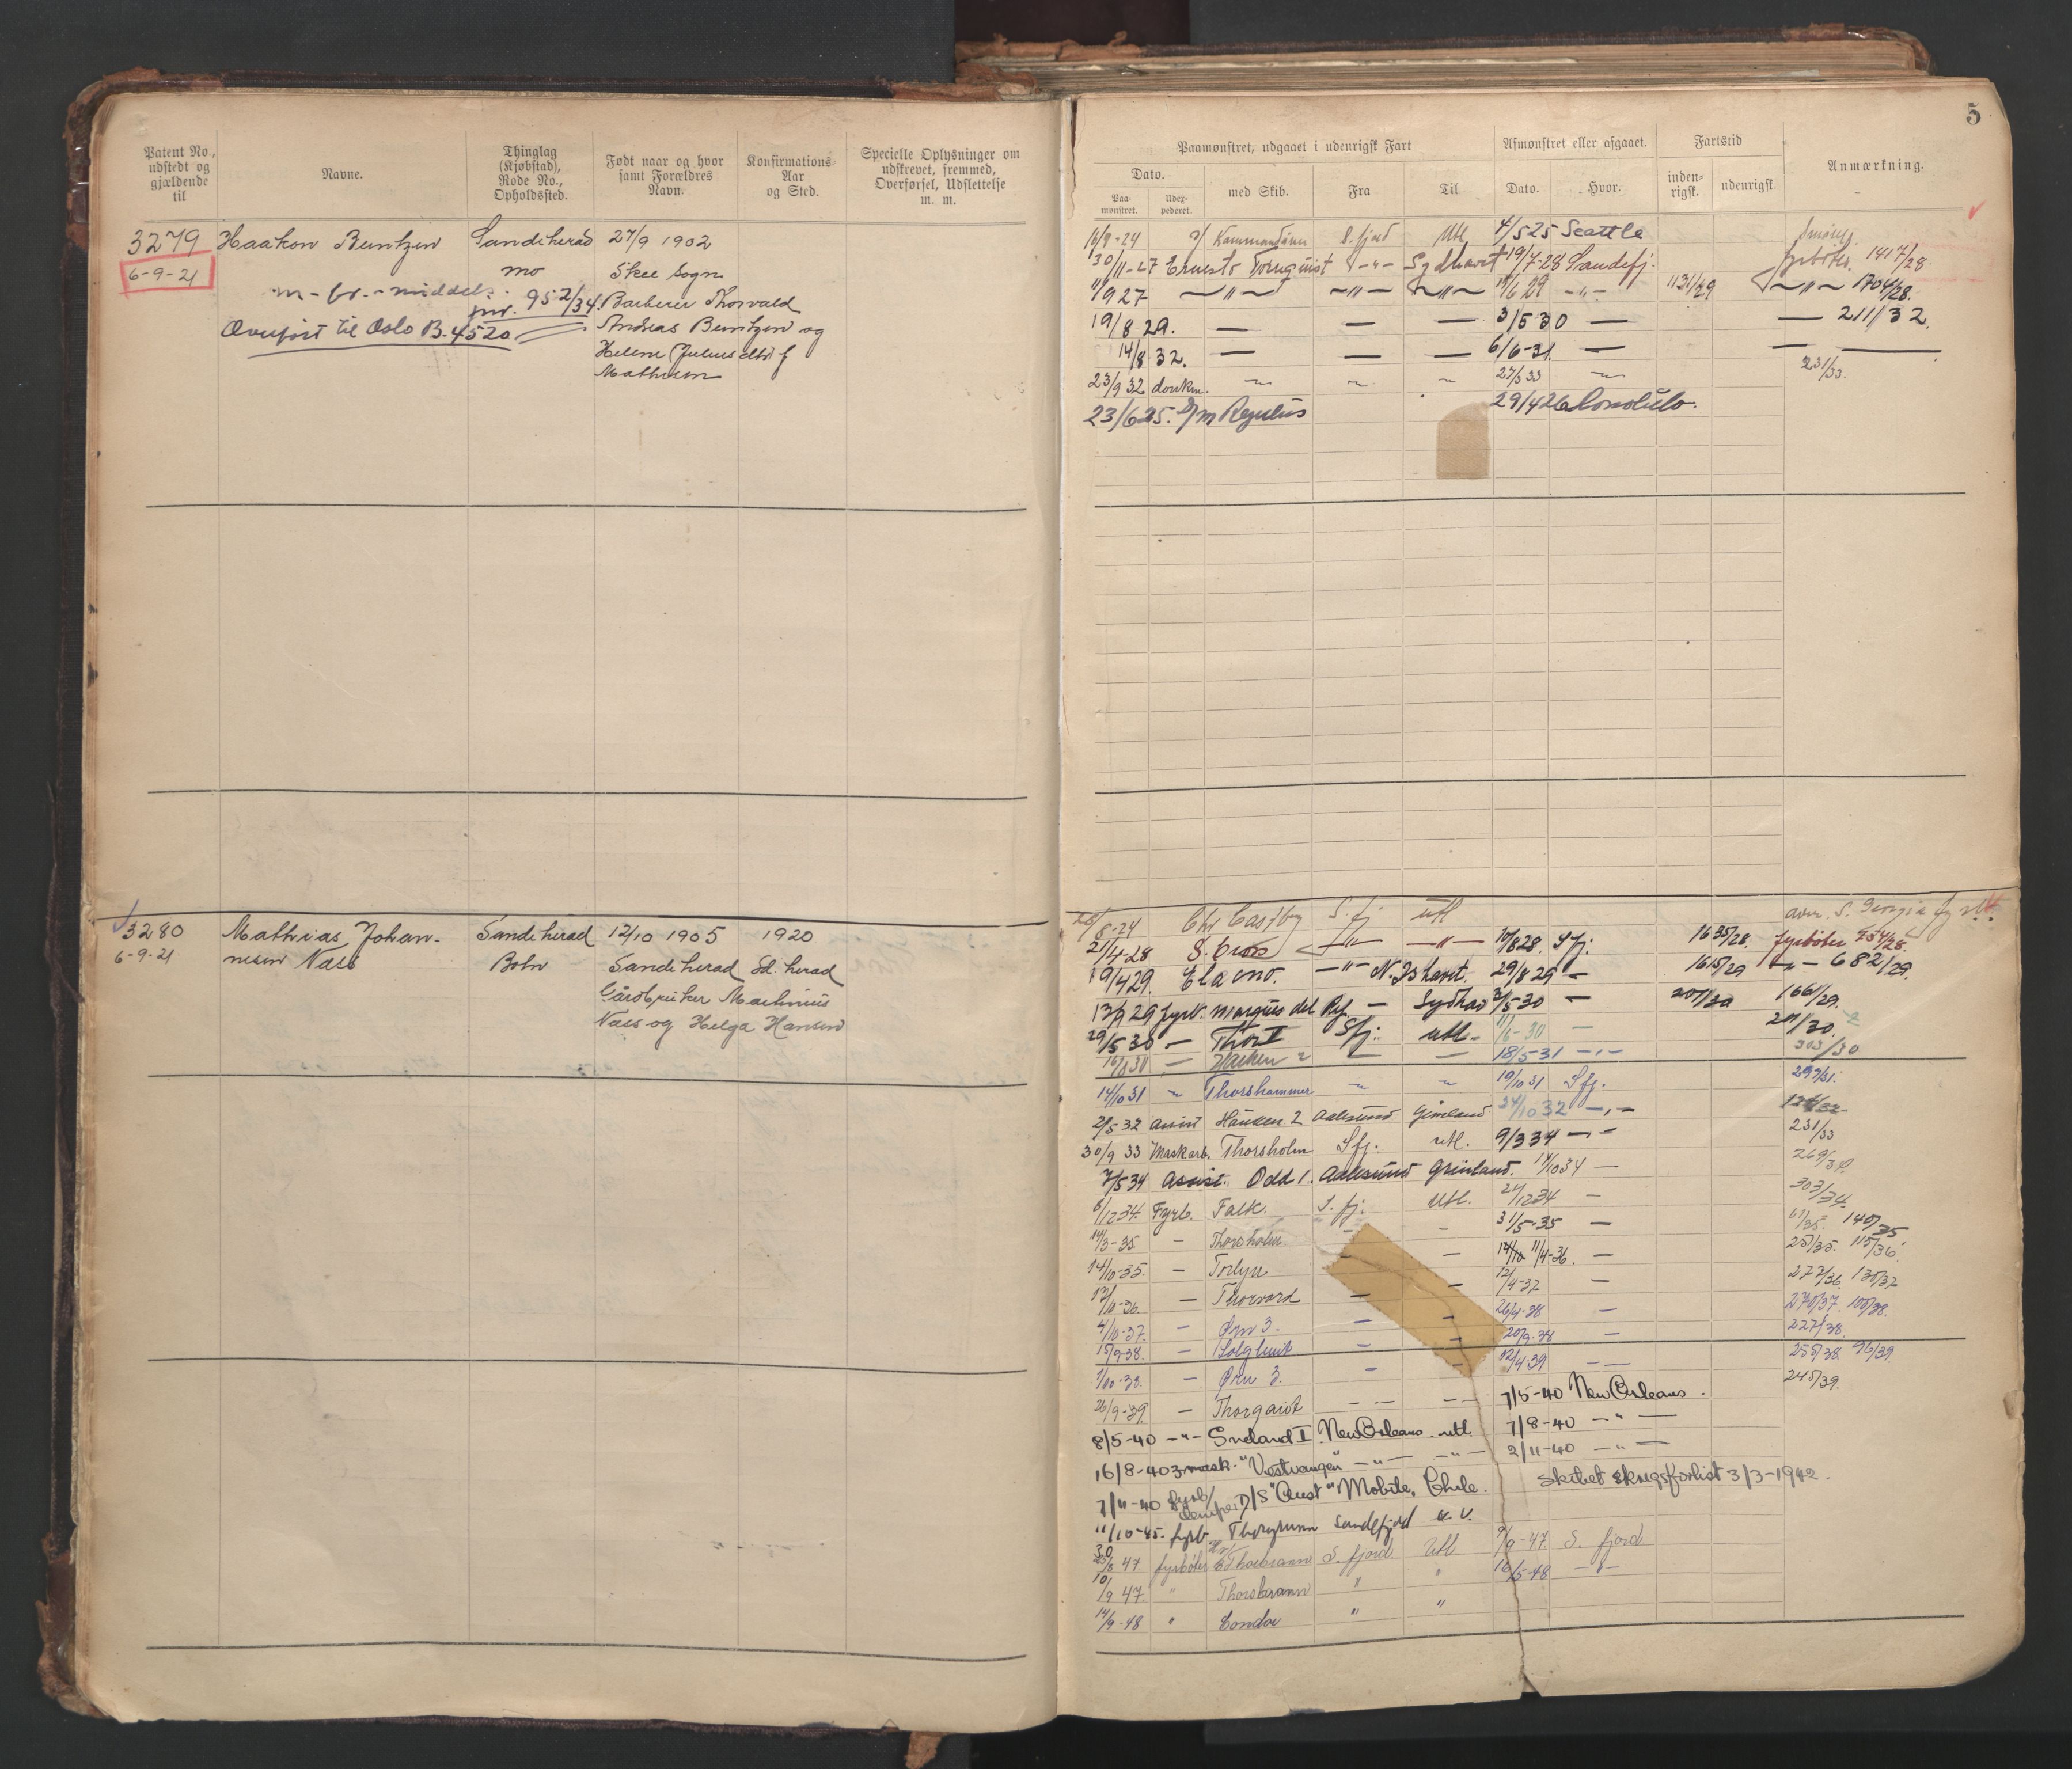 5
Patent No, udstedt og gjældende til
Navne.
Thinglag (Kjøbstad), Rode No., Opholdssted.
Født naar og hvor samt Forældres Navn.
Konfirmations-Aar og Sted.
Specielle Oplysninger om udskrevet, fremmed, Overførsel, Udslettelse m. m.
3279 Haakon Bentzen Sandeherad 27/9 1902
6-9-21 mo Skee sogn
m-br.-middels. jnr. 952/34. Barberer Thorvald
Overført til Oslo B. 4520 Andreas Bentzen og
Helene (Julius dtr) f
Mathisen
3280 Mathias Johan- Sandeherad 12/10 1905 1920
6-9-21 nesen Næss Bohn Sandeherad Sd. herad
Gårdbruker Mathinius
Næss og Helga Hansen
Paamønstret, udgaaet i udenrigsk Fart
Afmønstret eller afgaaet.
Fartstid
Anmærkning.
Dato.
Paa-mønstret.
Udex-pederet.
med Skib.
Fra
Til
Dato.
Hvor.
inden-rigsk.
udenrigsk.
16/9-24 Kommandøren S. fjord Utl 4/5 25 Seattle
30/11-27 Ernesto Tornquist -"- Sydhavet 19/7-28 Sandefj. fyrbøter. 1417/28
11/9 27 -"- -"- -"- 29 -"- 1131/29 -"- 1704/28.
19/8 29. — — — 3/5 30 — — 211/32.
14/8 32. — — — 6/6-31 — —
23/9 32 donkm. " " " 27/3 33 " 231/33.
23/6 25. s/m Regulus 29/4 26 Honolulo.
28/8-24 Chr Castberg S. fj utl
21/4-28 S. Cross -"- -"- 10/8 28 Sfj: 1635/28. fyrbøter 734/28.
19/4 29. Elacino. -"- N. Ishavet. 29/8 29 — 1615/29 -"- 682/29.
13/9 29 fyrb. Marques del Rif. — Sydhav 3/5-30 — 207/30 166/29.
29/5 30 — Thor I Sfj: utl. 11/6-30 — 201/30.
16/8 30 — Hauken 2 — — 18/5-31 -"- 303/30
14/10 31 " Thorshammer " " 19/10 31 Sfj. 297/31.
2/5 32 assist Hauken 2 Aalesund Grønland 24/10 32 -"-
30/9 33 Maskarb. Thorsholm Sfj. utl. 9/3 34 -"- 231/33
7/5 34 Assist. Odd 1. Aalesund Grønland. 14/10 34 —
6/12 34. Fyrb. Falk. S. fj. Utl. 24/12 34 — 303/34.
14/3-35 — Thorsholm — 31/5-35 — 61/35. 140/35.
14/10-35. — Torlyn — — 11/4-36. — 257/35. 115/36.
12/10-36. — Thorvard — — 12/4-37 — 272/36. 135/37
4/10-37. — Ørn 3. — — 26/4-38 — 270/37. 100/38.
15/9-38. — Solglimt — — 20/9-38 — 227/38.
1/10-38. — Ørn 3. — — 12/4-39 — 255/38. 96/39.
26/9-39. — Thorgaut — — 7/5-40 New Orleans. 245/39.
8/5-40 -"- Sneland I. New Orleans utl. 7/8-40 -"-
16/8-40 3 mask. "Vestvangen" -"- -"- 2/11-40 -"-
7/11-40 fyrb/ D/S "Aust" Mobile, Chile. Skibet krigsforlist 3/3-1942.
11/10-45. fyrb. Thorgrunn Sandefjord u. v.
30/8 47 fyrbøter Thorbrann S. fjord Utl 9/9-47 S. fjord
10/9 47. " Thorsbrann " " 16/5-48 -"-
14/9-48 " Condor " "